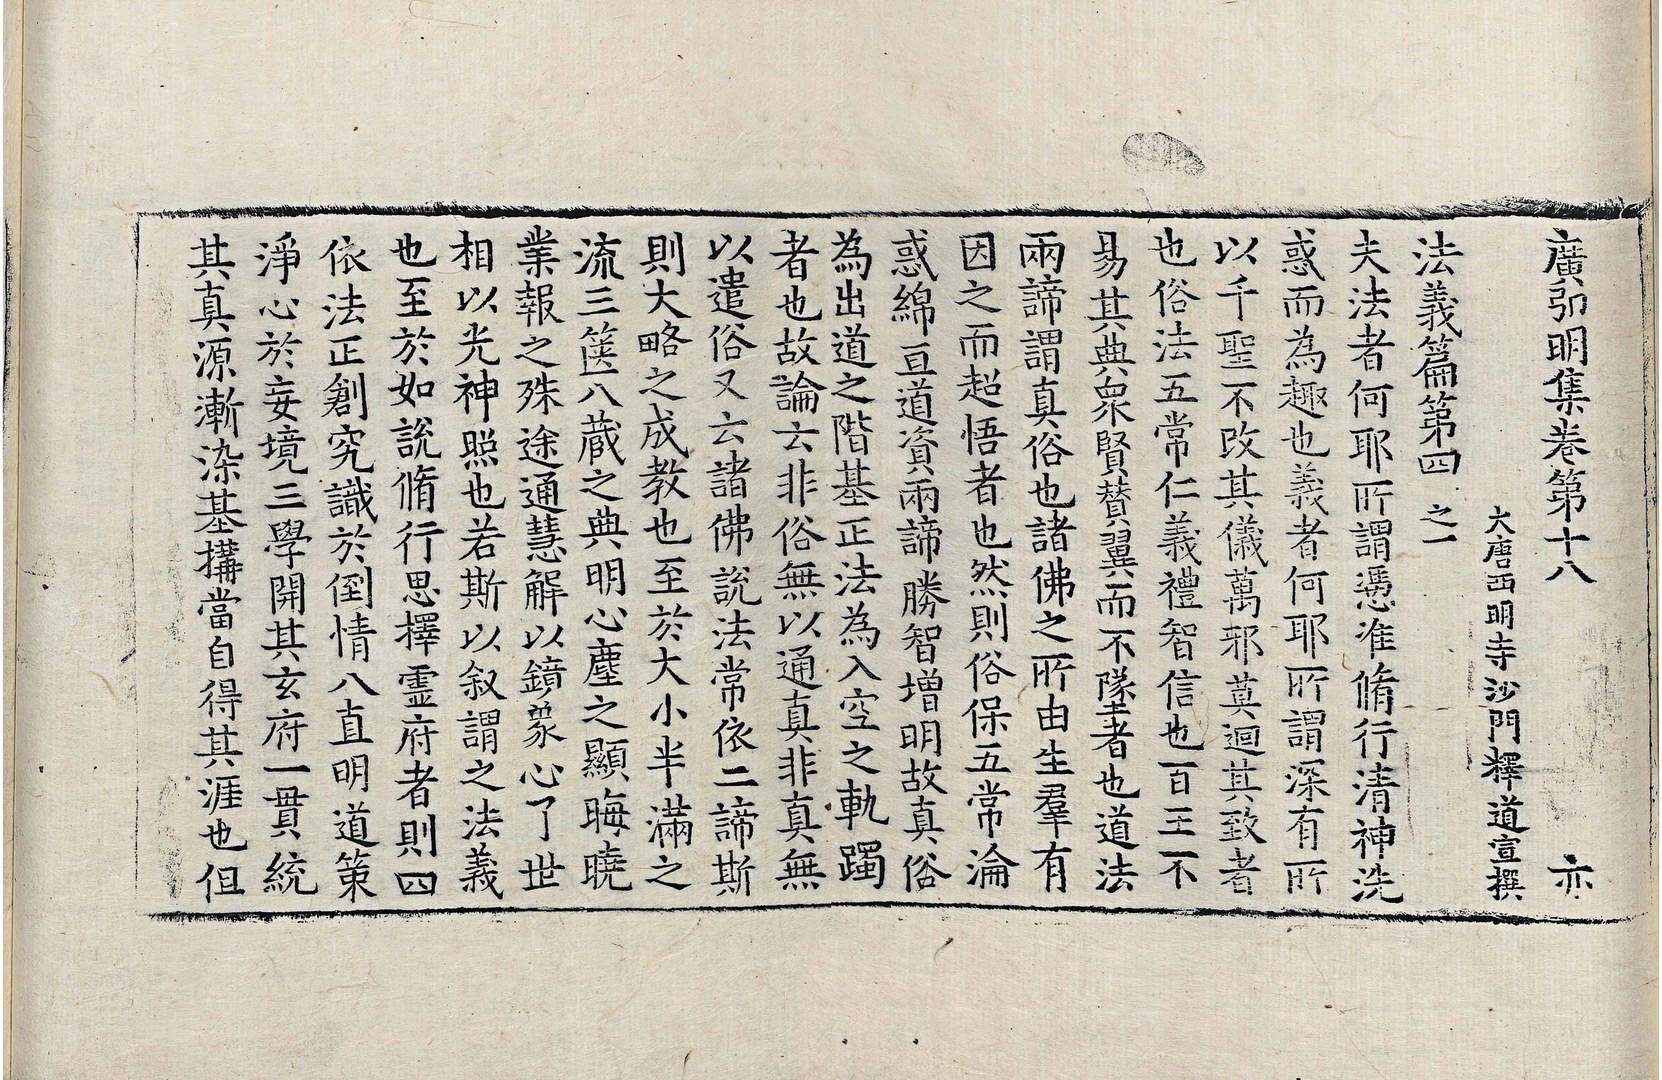 廣弘明集卷第十八　亦
大唐西明寺沙門釋道宣撰
法義篇第四之一
夫法者何耶所謂憑准脩行清神洗
惑而為趣也義者何耶所謂深有所
以千聖不改其儀萬邪莫迴其致者
也俗法五常仁義禮智信也百王不
易其典衆賢賛翼而不墜者也道法
兩諦謂真俗也諸佛之所由生羣有
因之而超悟者也然則俗保五常淪
惑綿亘道資兩諦勝智增明故真俗
為出道之階基正法為入空之軌躅
者也故論云非俗無以通真非真無
以遣俗又云諸佛說法常依二諦斯
則大略之成教也至於大小半滿之
流三篋八蔵之典明心塵之顯晦曉
業報之殊途通慧解以鏡象心了世
相以光神照也若斯以叙謂之法義
也至於如說脩行思擇靈府者則四
依法正創究識於倒情八直明道策
淨心於妄境三學開其玄府一貫統
其真源漸染基搆當自得其涯也但